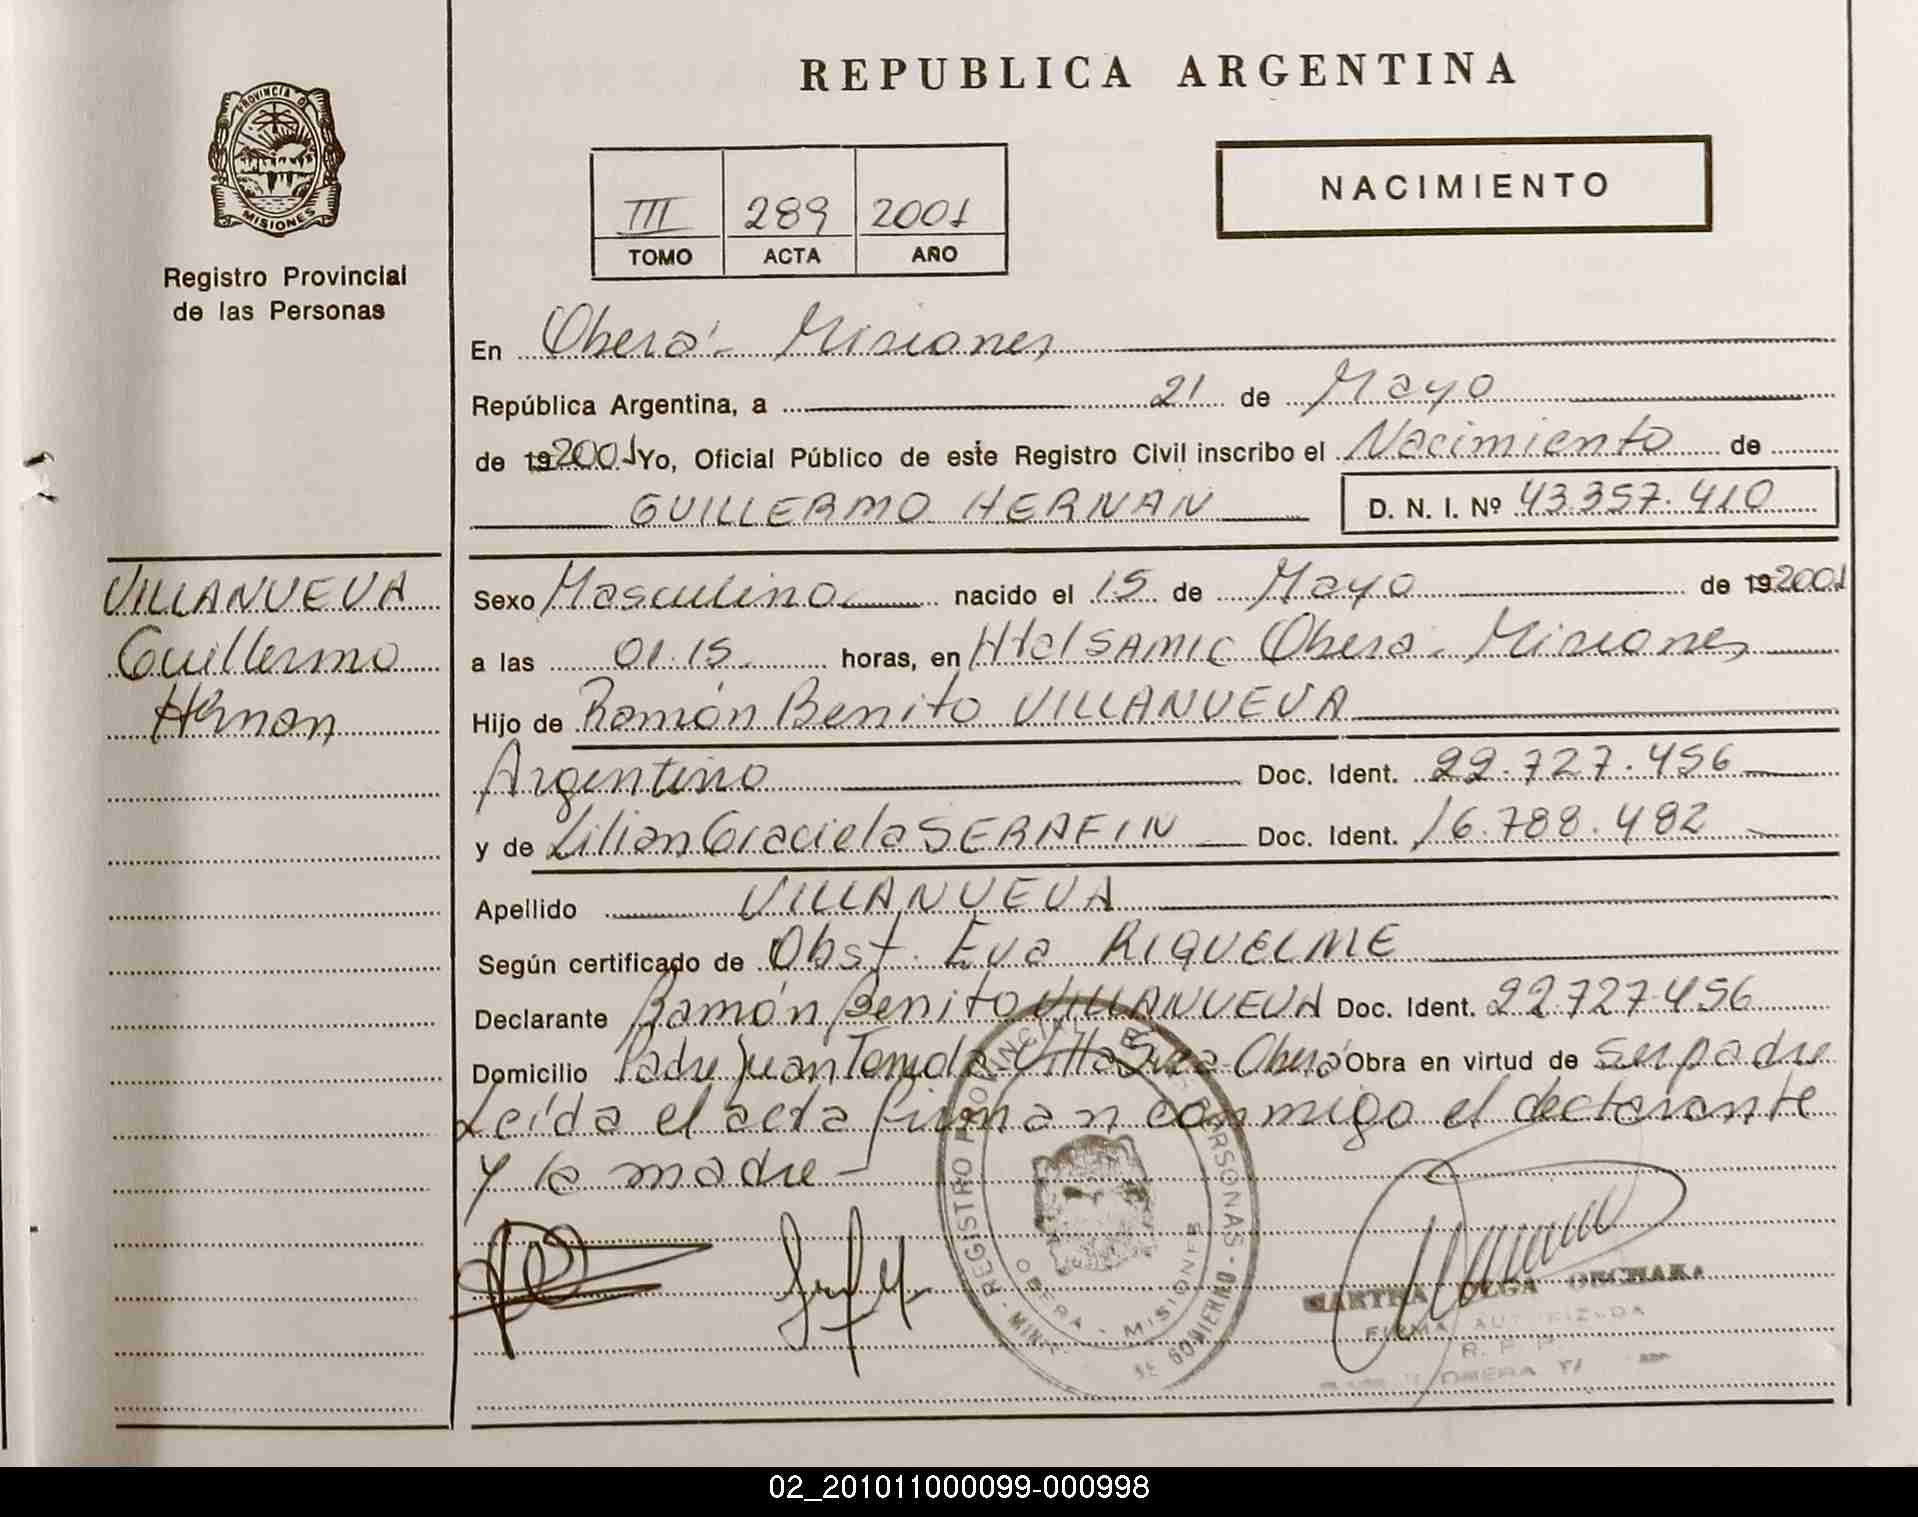 REPUBLICA ARGENTINA
PROVINCIA D
MISIONES
Registro Provincial
de las Personas
III 289 2001
TOMO ACTA AÑO
NACIMIENTO
En Oberá - Misiones
República Argentina, a 21 de Mayo
de 192001 Yo, Oficial Público de este Registro Civil inscribo el Nacimiento de
GUILLERMO HERNAN D. N. I. Nº 43.357.410
VILLANUEVA
Guillermo
Hernan
Sexo Masculino nacido el 15 de Mayo de 192001
a las 01.15 horas, en Htal SAMIC Oberá - Misiones
Hijo de Ramón Benito VILLANUEVA
Argentino Doc. Ident. 22.727.456
y de Lilian Graciela SERAFIN Doc. Ident. 16.788.482
Apellido VILLANUEVA
Según certificado de Obst. Eva RIQUELME
Declarante Ramón Benito VILLANUEVA Doc. Ident. 22.727.456
Domicilio Padre Juan Villa Oberá Obra en virtud de ser padre
Leída el acta firman conmigo el declarante
y la madre
REGISTRO PROVINCIAL DE LAS PERSONAS - MIN. DE GOBIERNO
OBERA - MISIONES
MARTHA OLGA ORCHAKA
FIRMA AUTORIZADA
R. P. P.
OBERA
02_201011000099-000998